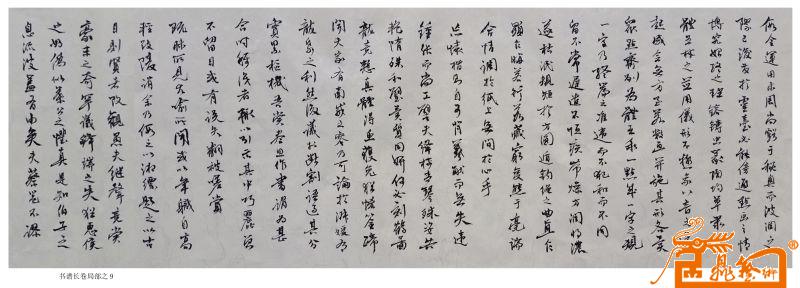 假令運用未周尚虧于秘奧而波瀾之
際已浚發於靈臺必能傍通點畫之情
博究始終之理鎔鑄虫篆陶均草隸
體五材之並用儀形不極象八音之迭
起感會無方至若數畫并施其形各異
眾點齊列為體互乖一點成一字之規
一字乃終篇之准違而不犯和而不同
留不常遲遣不恒疾帶燥方潤將濃
遂枯泯規矩於方圓遁鉤繩之曲直乍
顯乍晦若行若藏窮變態於毫端
合情調於紙上無間於心手
忘懷楷則自可背羲獻而無失違
鍾張而尚工譬夫絳樹青琴殊姿共
艷隋珠和璧異質同妍何必刻鶴圖
龍竟慚真體得魚獲兔猶恡筌蹄
聞夫家有南威之容乃可論於淑媛有
龍泉之利然後議於斷割語過其分
實累樞機吾嘗盡思作書謂為甚
合時稱識者輒以引示其中巧麗曾
不留目或有誤失翻被嗟賞
既昧所見尤喻所聞或以年職自高
輕致陵誚余乃假之以緗縹題之以古
目則賢者改觀愚夫繼聲競賞
豪末之奇罕議鋒端之失猶惠侯
之好偽似葉公之懼真是知伯子之
息流波蓋有由矣夫蔡邕不謬
书谱长卷局部之 9